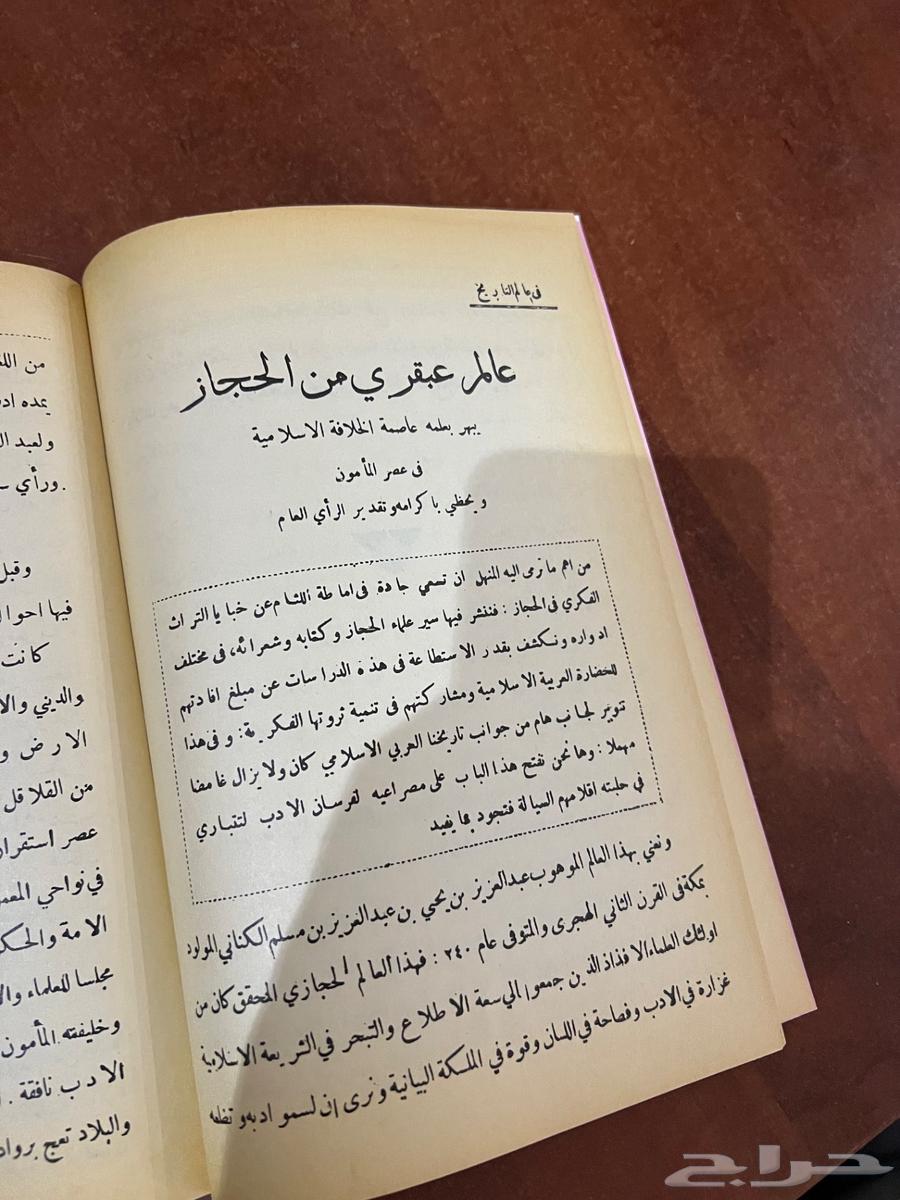 فى عالم التاريخ
عالم عبقري من الحجاز
يبهر بعلمه عاصمة الخلافة الاسلامية
فى عصر المأمون
ويحظي باكرامه وتقدير الرأي العام
من اهم ما ترمى اليه المنهل ان تسعى جادة فى اماطة اللثام عن خبايا التراث
الفكري فى الحجاز : فننشر فيها سير علماء الحجاز وكتابه وشعرائه، فى مختلف
ادواره ونكشف بقدر الاستطاعة فى هذه الدراسات عن مبلغ افادتهم
للحضارة العربية الاسلامية ومشاركتهم فى تنمية ثروتها الفكرية : وفى هذا
تنوير لجانب هام من جوانب تاريخنا العربي الاسلامي كان ولا يزال غامضا
مهملا : وها نحن نفتح هذا الباب على مصراعيه لفرسان الادب لتتبارى
في حلبته اقلامهم السيالة فتجود بما يفيد
ونعني بهذا العالم الموهوب عبد العزيز بن يحيي بن عبد العزيز بن مسلم الكناني المولود
بمكة فى القرن الثاني الهجرى والمتوفى عام ٢٤٠ : فهذا العالم الحجازي المحقق كان من
اولئك العلماء الافذاذ الذين جمعوا الي سعة الاطلاع والتبحر في الشريعة الاسلامية
غزارة في الادب وفصاحة في اللسان وقوة في الملكة البيانية ونرى ان لسمو ادبه وتظلعه
من
يمده
ولعبد
ورأي
وقبل
فيها
كانت
والديني
الارض
من القلاقل
عصر استقرار
في نواحي
الامة
مجلسا للعلماء
وخليفته المأمون
الادب نافقة .
والبلاد تعج
حراج